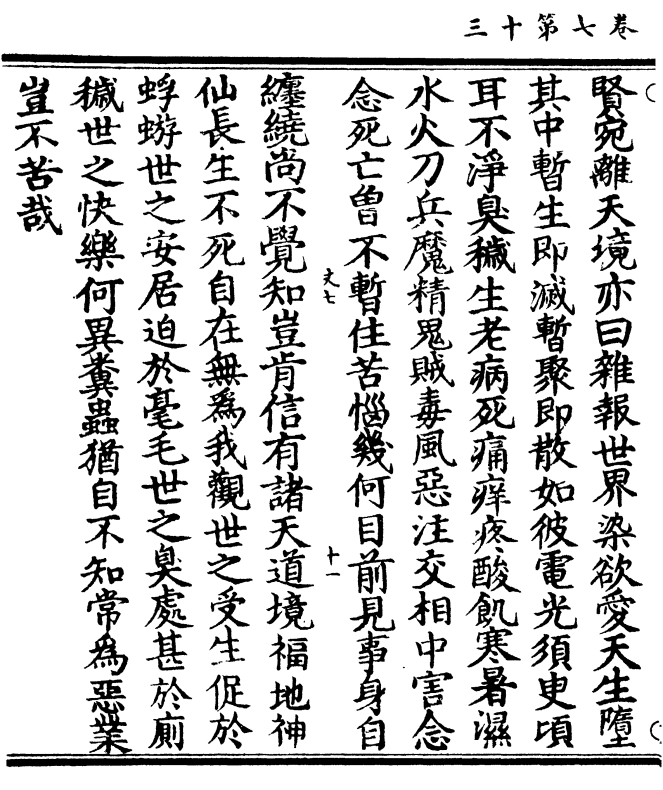 三十第七卷
賢宛離天境亦曰雜報世界染欲愛天生墮
其中暫生即滅暫聚即散如彼電光須臾頃
耳不淨臭穢生老病死痛痒疼酸飢寒暑濕
水火刀兵魔精鬼賊毒風惡注交相中害念
念死亡曾不暫住苦惱幾何目前見事身自
文七
十一
纏繞尚不覺知豈肯信有諸天道境福地神
仙長生不死自在無為我觀世之受生促於
蜉蝣世之安居迫於毫毛世之臭處甚於廁
穢世之快樂何異糞蟲猶自不知常為惡業
豈不苦哉